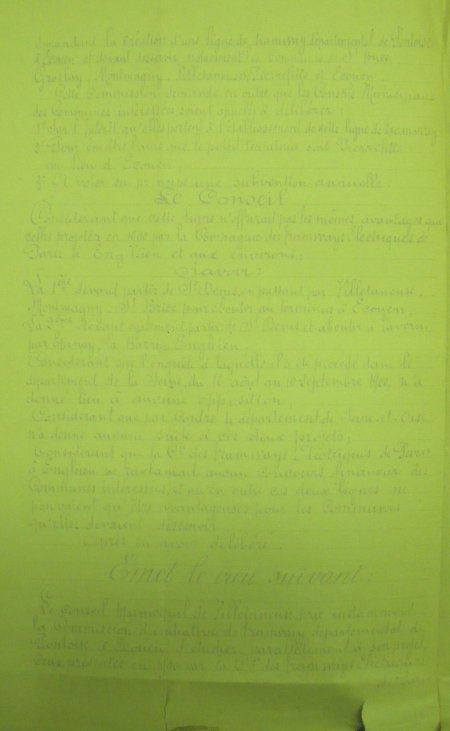 demandant la création d'une ligne de tramway départemental de Pontoise
à Ecouen et devant desservir notamment les communes de St Brice
Groslay, Montmagny, Villetaneuse, Pierrefitte et Ecouen.
Cette Commission demande en outre que les Conseils Municipaux
des Communes intéressées soient appelés à délibérer :
1º Sur l'intérêt qu'elles portent à l'établissement de cette ligne de tramway
2º Pour émettre l'avis que le point terminus soit Pierrefitte
au lieu d'Ecouen
3º A voter en principe une subvention annuelle.
Le Conseil
Considérant que cette ligne n'offrirait pas les mêmes avantages que
celles projetées en 1900 par la Compagnie des tramways électriques de
Paris à Enghien et aux environs ;
Savoir :
La 1ère devant partir de St Denis, en passant par Villetaneuse,
Montmagny, St Brice pour aboutir au terminus à Ecouen.
La 2ème devant également partir de St Denis et aboutir à Taverny
par Epinay, la Barre, Enghien.
Considérant que l'enquête à laquelle il a été procédé dans le
département de la Seine, du 16 août au 16 Septembre 1900, n'a
donné lieu à aucune opposition,
Considérant que par contre le département de Seine-et-Oise
n'a donné aucune suite à ces deux projets ;
Considérant que la Cie des tramways Electriques de Paris
à Enghien ne réclamait aucun concours financier des
communes intéressées, et qu'en outre ces deux lignes ne
pouvaient qu'être avantageuses pour les communes
qu'elles devaient desservir
Après en avoir délibéré.
Emet le vœu suivant :
Le Conseil Municipal de Villetaneuse prie instamment
la Commission d'initiative du tramway départemental de
Pontoise à Ecouen d'étudier parallèlement à son projet,
ceux présentés en 1900 par la Cie des tramways Electriques